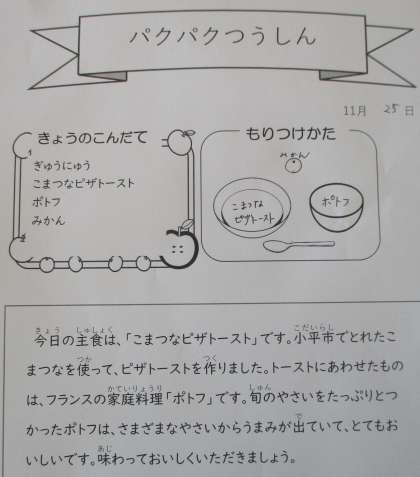 パクパクつうしん
11月 25日
きょうのこんだて
ぎゅうにゅう
こまつなピザトースト
ポトフ
みかん
もりつけかた
みかん
こまつな
ピザトースト
ポトフ
きょう しゅしょく こだいらし
今日の主食は、「こまつなピザトースト」です。小平市でとれたこ
つか つく
まつなを使って、ピザトーストを作りました。トーストにあわせたもの
かていりょうり しゅん
は、フランスの家庭料理「ポトフ」です。旬のやさいをたっぷりとつ
で
かったポトフは、さまざまなやさいからうまみが出ていて、とてもお
あじ
いしいです。味わっておいしくいただきましょう。